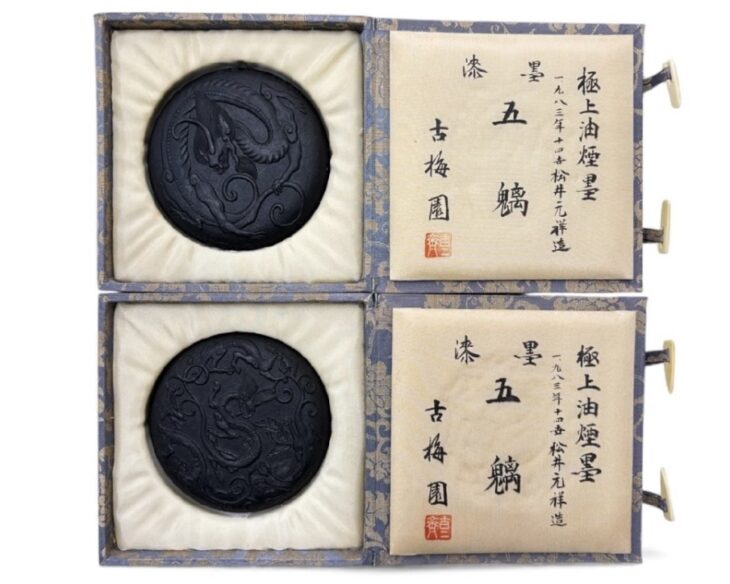 極上油煙墨
一九八三年十四世松井元祥造
漆墨
五魑
古梅園
極上油煙墨
一九八三年十四世松井元祥造
漆墨
五魑
古梅園